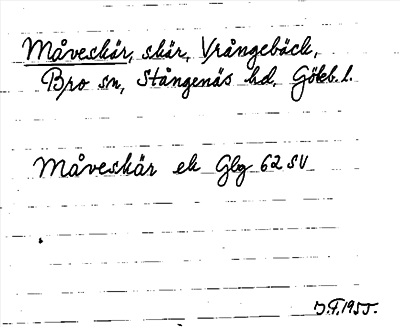 Måveskär, skär, Vrångebäck,
Bro sn, Stångenäs hd, Göteb. l.
Måveskär ek Glg 62 SV
J.F. 1955.